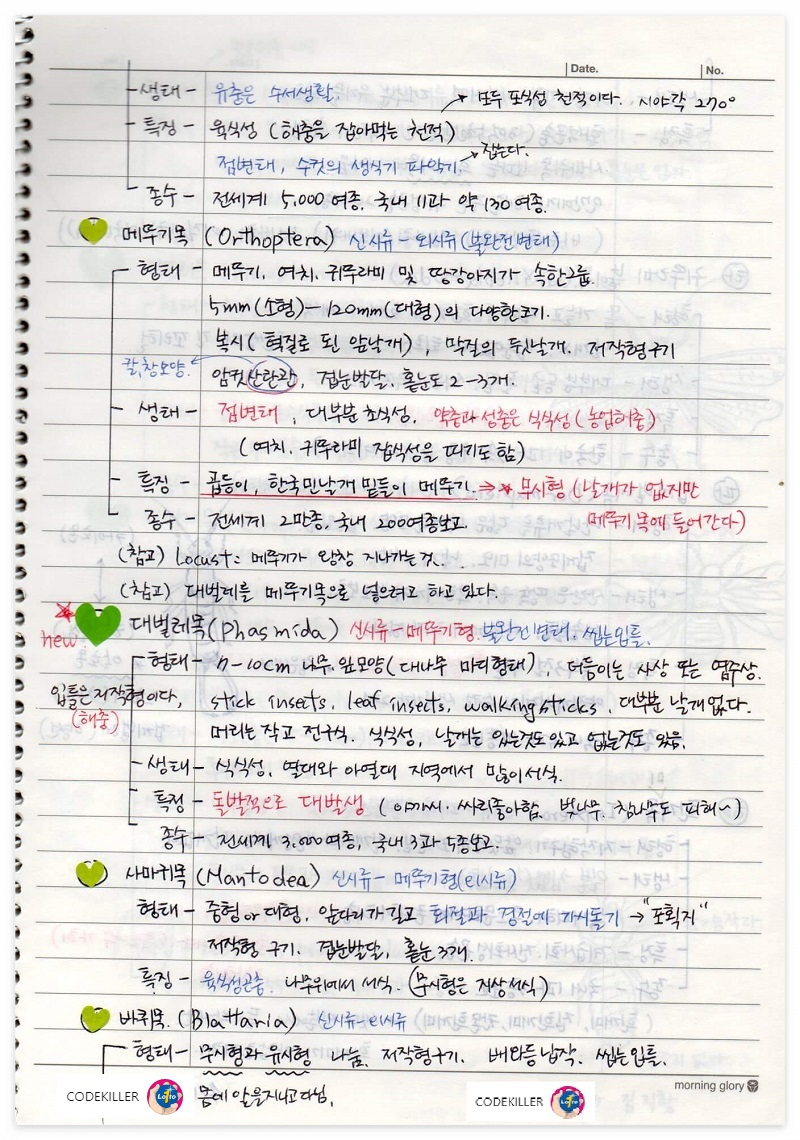 Date.
No.
생태 - 유충은 수서생활.
모두 포식성 천적이다. 시야각 270°
특징 - 육식성 (해충을 잡아먹는 천적)
점변태, 수컷의 생식기 파악기. 잡는다.
종수 - 전세계 5,000여종. 국내 11과 약 130여종.
메뚜기목 (Orthoptera) 신시류 - 외시류 (불완전변태)
형태 - 메뚜기. 여치. 귀뚜라미 및 땅강아지가 속한그룹.
5mm(소형) - 120mm(대형)의 다양한크기.
복시( 혁질로 된 앞날개), 막질의 뒷날개. 저작형구기
칼,창모양.
암컷산란관, 겹눈발달. 홑눈도 2-3개.
생태 - 점변태, 대부분 초식성. 약충과 성충은 식식성 (농업해충)
(여치. 귀뚜라미 잡식성을 띠기도 함)
특징 - 꼽등이, 한국민날개 밑들이 메뚜기. → 무시형 (날개가 없지만
종수 - 전세계 2만종, 국내 200여종보고. 메뚜기목에 들어간다)
(참고) Locust : 메뚜기가 왕창 지나가는 것.
(참고) 대벌레를 메뚜기목으로 넣으려고 하고 있다.
new
대벌레목(Phasmida) 신시류-메뚜기형. 불완전변태, 씹는입틀.
형태 - 7-10cm 나무.잎모양(대나무 마디형태), 더듬이는 사상 또는 염주상.
입틀은 저작형이다, stick insects, leaf insects, walking sticks, 대부분 날개없다.
(해충)
머리는 작고 전구식. 식식성, 날개는 있는것도 있고 없는것도 있음.
생태 - 식식성, 열대와 아열대 지역에서 많이서식.
특징 - 돌발적으로 대발생 (아까시. 싸리좋아함. 벚나무. 참나무도 피해~)
종수 - 전세계 3,000여종, 국내 3과 5종보고.
사마귀목 (Mantodea) 신시류 - 메뚜기형(외시류)
형태 - 중형 or 대형, 앞다리가 길고 퇴절과 경절에 가시돌기 → "포획지"
저작형 구기. 겹눈발달, 홑눈 3개.
특징 - 육식성곤충. 나무위에서 서식. (무시형은 지상서식)
바퀴목. (Blattaria) 신시류-외시류
형태 - 무시형과 유시형 나뉨. 저작형구기. 배와등 납작. 씹는입틀.
몸에 알을지니고다님.
morning glory
CODEKILLER
Lotto
CODEKILLER
Lotto